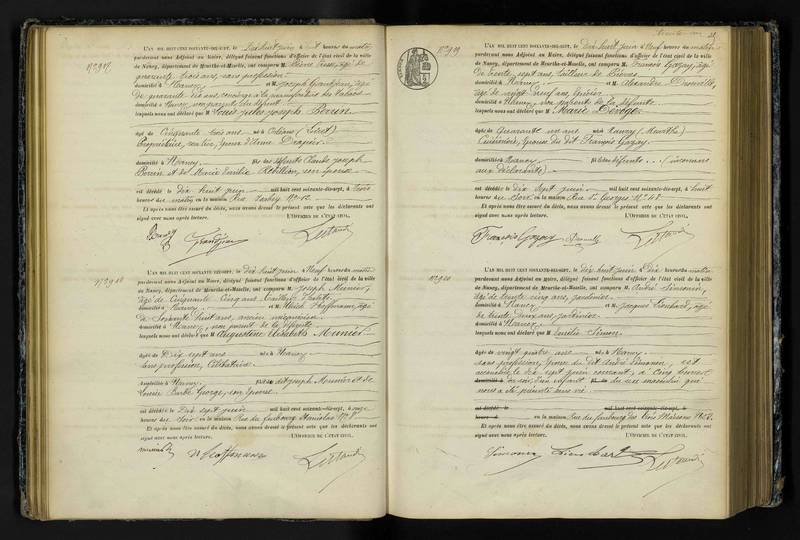 N° 917
L'AN MIL HUIT CENT SOIXANTE-DIX-SEPT, le Dix huit juin à huit heures du matin
pardevant nous Adjoint au Maire, délégué faisant fonctions d'officier de l'état civil de la ville
de Nancy, département de Meurthe-et-Moselle, ont comparu M. âgé de
quarante trois ans, sans profession
domicilié à Nancy et M. Joseph Grandjean, âgé
de quarante dix ans, concierge à la manufacture des tabacs
domicilié à Nancy, non parents du défunt
lesquels nous ont déclaré que M Louis Jules Joseph Perrin
âgé de Cinquante trois ans né à Orléans (Loiret)
Propriétaire, rentier, époux d'Anne Draquier
domicilié à Nancy fils des défunts Claude Joseph
Perrin et de Marie Emilie Rebillion, son épouse
est décédé le Dix huit juin mil huit cent soixante-dix-sept, à trois
heures du matin en la maison Rue N° 12
Et après nous être assuré du décès, nous avons dressé le présent acte que les déclarants ont
signé avec nous après lecture. L'OFFICIER DE L'ÉTAT CIVIL,
Grandjean
N° 918
L'AN MIL HUIT CENT SOIXANTE-DIX-SEPT, le dix huit juin à Neuf heures du matin
pardevant nous Adjoint au Maire, délégué faisant fonctions d'officier de l'état civil de la ville
de Nancy, département de Meurthe-et-Moselle, ont comparu M. Joseph Munier,
âgé de Cinquante Cinq ans, tailleur d'habits
domicilié à Nancy et M. Ulrich Hoffmann, âgé
de Soixante huit ans, ancien
domicilié à Nancy, non parent de la défunte
lesquels nous ont déclaré que M Augustine Elisabeth Munier
âgée de Dix sept ans née à Nancy
sans profession, Célibataire
domiciliée à Nancy fille du dit Joseph Munier et de
Louise Barbe George, son épouse
est décédée le Dix sept juin mil huit cent soixante-dix-sept, à onze
heures du soir en la maison Rue du faubourg Stanislas N° 8
Et après nous être assuré du décès, nous avons dressé le présent acte que les déclarants ont
signé avec nous après lecture. L'OFFICIER DE L'ÉTAT CIVIL,
Hoffmann
N° 919
L'AN MIL HUIT CENT SOIXANTE-DIX-SEPT, le dix huit juin à Neuf heures du matin
pardevant nous Adjoint au Maire, délégué faisant fonctions d'officier de l'état civil de la ville
de Nancy, département de Meurthe-et-Moselle, ont comparu M. François Gazay, âgé
de trente sept ans, tailleur de pierres
domicilié à Nancy et M. Alexandre
âgé de vingt neuf ans, épicier
domicilié à Nancy, non parents de la défunte
lesquels nous ont déclaré que M Marie Dévoge
âgée de Quarante un ans née à Nancy (Meurthe)
Cuisinière, épouse du dit François Gazay
domiciliée à Nancy fille des défunts ... (inconnus
aux déclarants)
est décédée le Dix sept juin mil huit cent soixante-dix-sept, à huit
heures du soir en la maison Rue St Georges N° 48
Et après nous être assuré du décès, nous avons dressé le présent acte que les déclarants ont
signé avec nous après lecture. L'OFFICIER DE L'ÉTAT CIVIL,
François Gazay
N° 920
L'AN MIL HUIT CENT SOIXANTE-DIX-SEPT, le dix huit juin à Dix heures du matin
pardevant nous Adjoint au Maire, délégué faisant fonctions d'officier de l'état civil de la ville
de Nancy, département de Meurthe-et-Moselle, ont comparu M. André Simonin,
âgé de trente cinq ans, jardinier
domicilié à Nancy et M. Jacques Lienhard, âgé
de trente deux ans, jardinier
domicilié à Nancy
lesquels nous ont déclaré que M Emilie Simon
âgée de vingt quatre ans née à Nancy
sans profession, épouse du dit André Simonin, est
accouchée le dix sept juin courant, à cinq heures
domicilié à du soir, d'un enfant fil de du sexe masculin qui
nous a été présenté sans vie
est décédé le mil huit cent soixante-dix-sept, à
heures en la maison Rue du faubourg des Trois Maisons N° 28
Et après nous être assuré du décès, nous avons dressé le présent acte que les déclarants ont
signé avec nous après lecture. L'OFFICIER DE L'ÉTAT CIVIL,
Simonin Lienhart